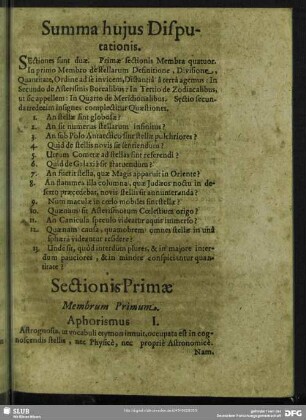 Summa hujus Disputationis.
SEctiones sunt duæ. Primæ sectionis Membra quatuor.
In primo Membro de stellarum Definitione, Divisione,
Quantitate, Ordine ad se invicem, Distantiâ à terrâ agemus: In
Secundo de Asterismis Borealibus: In Tertio de Zodiacalibus,
ut sic appellem: In Quarto de Meridionalibus. Sectio secunda
tredecim insignes complectitur Quæstiones.
1. An stellæ sint globosæ?
2. An sit numerus stellarum Infinitus?
3. An sub Polo Antarctico sint stellæ pulchriores?
4. Quid de stellis novis sit sentiendum?
5. Utrum Cometæ ad stellas sint referendi?
6. Quid de Galaxiâ sit statuendum?
7. An fuerit stella, quæ Magis apparuit in Oriente?
8. An flammea illa columna, quæ Judæos noctu in deserto
præcedebat, novis stellis sit annumeranda?
9. Num maculæ in cœlo nobiles sint stellæ?
10. Quænam sit Asterismorum Cœlestium origo?
11. An Canicula speculo videatur aquæ immerso?
12. Quænam causa, quamobrem omnes stellæ in unâ
sphærâ videantur residere?
13. Unde sit, quòd interdum plures, & in majore interdum
pauciores, & in minore conspiciantur quantitate?
Sectionis Primæ
Membrum Primum.
Aphorismus I.
Astrognosia, ut vocabuli etymon innuit, occupata est in cognoscendis
stellis, nec Physicè, nec propriè Astronomicè.
Nam,
SLUB
Wir führen Wissen.